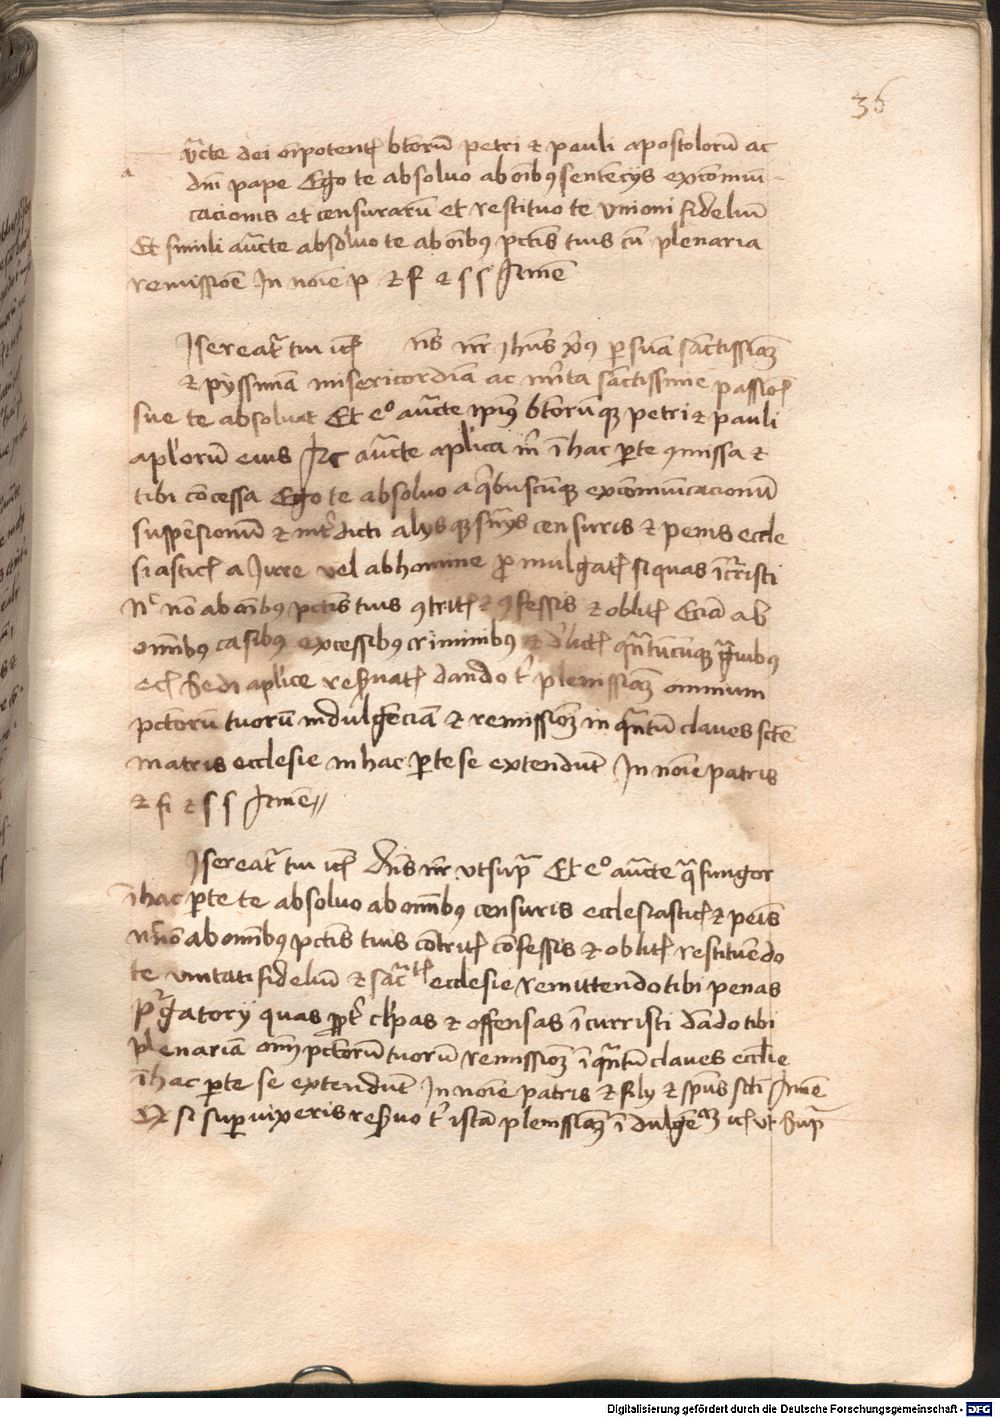 36
aucte dei oīpotent btorū petri et pauli apostolorū ac
dni pape Ego te absoluo ab oībꝫ sentecijs excomūi-
cacionis et censurarū et restituo te vnioni fideliū
Et simili aucte absoluo te ab oībꝫ pctis tuis cū plenaria
remissioē In noīe p et f et s s Amē
Misereat tui etc dns nr Jhus xpus p suam sanctissiaꝫ
et pyssimā misericordiā ac mīta sanctissime passiois
sue te absoluat Et eᵒ aucte ipiꝰ btorūqꝫ petri et pauli
aplorū eius Ac aucte aplica m in hac pte ꝯmissa et
tibi cōcessa Ego te absoluo a qbuscūqꝫ excomūicacionū
suspēsionū et intdicti alysqꝫ snijs censuris et penis eccle
siastic a Jure vel ab homine promulgat si quas īcristi
Nc nō ab oībꝫ pctis tuis ꝯtrit et ꝯfessis et oblit Eciā ab
omībꝫ casibꝫ excessibꝫ criminibꝫ et dlict qntūcūqꝫ grauibꝫ
ec Sedi aplice reseruat dando t plenissiaꝫ omnium
pctorū tuorū indulgēciā et remissioꝫ in qntū claues scte
matris ecclesie in hac pte se extendūt In noīe patris
et fi et s s Amē
Misereat tui etc dns nr vt supra Et eᵒ aucte qua fungor
ī hac pte te absoluo ab omībꝫ censuris ecclesiastic et peīs
nnō ab omībꝫ pctis tuis cōtrit confessis et oblit restituēdo
te vnitati fideliū et sactis ecclesie remittendo tibi penas
prgatorij quas ppt clpas et offensas īcurristi dādo tibi
plenariā oīm pctorū tuorū remissioꝫ ī qntū claues ecclie
ī hac pte se extendūt In noīe patris et filij et spus scti Amē
Et si superuixeris reseruo t istā plenissiaꝫ īdulgēaꝫ etc vt supra
Digitalisierung gefördert durch die Deutsche Forschungsgemeinschaft - DFG